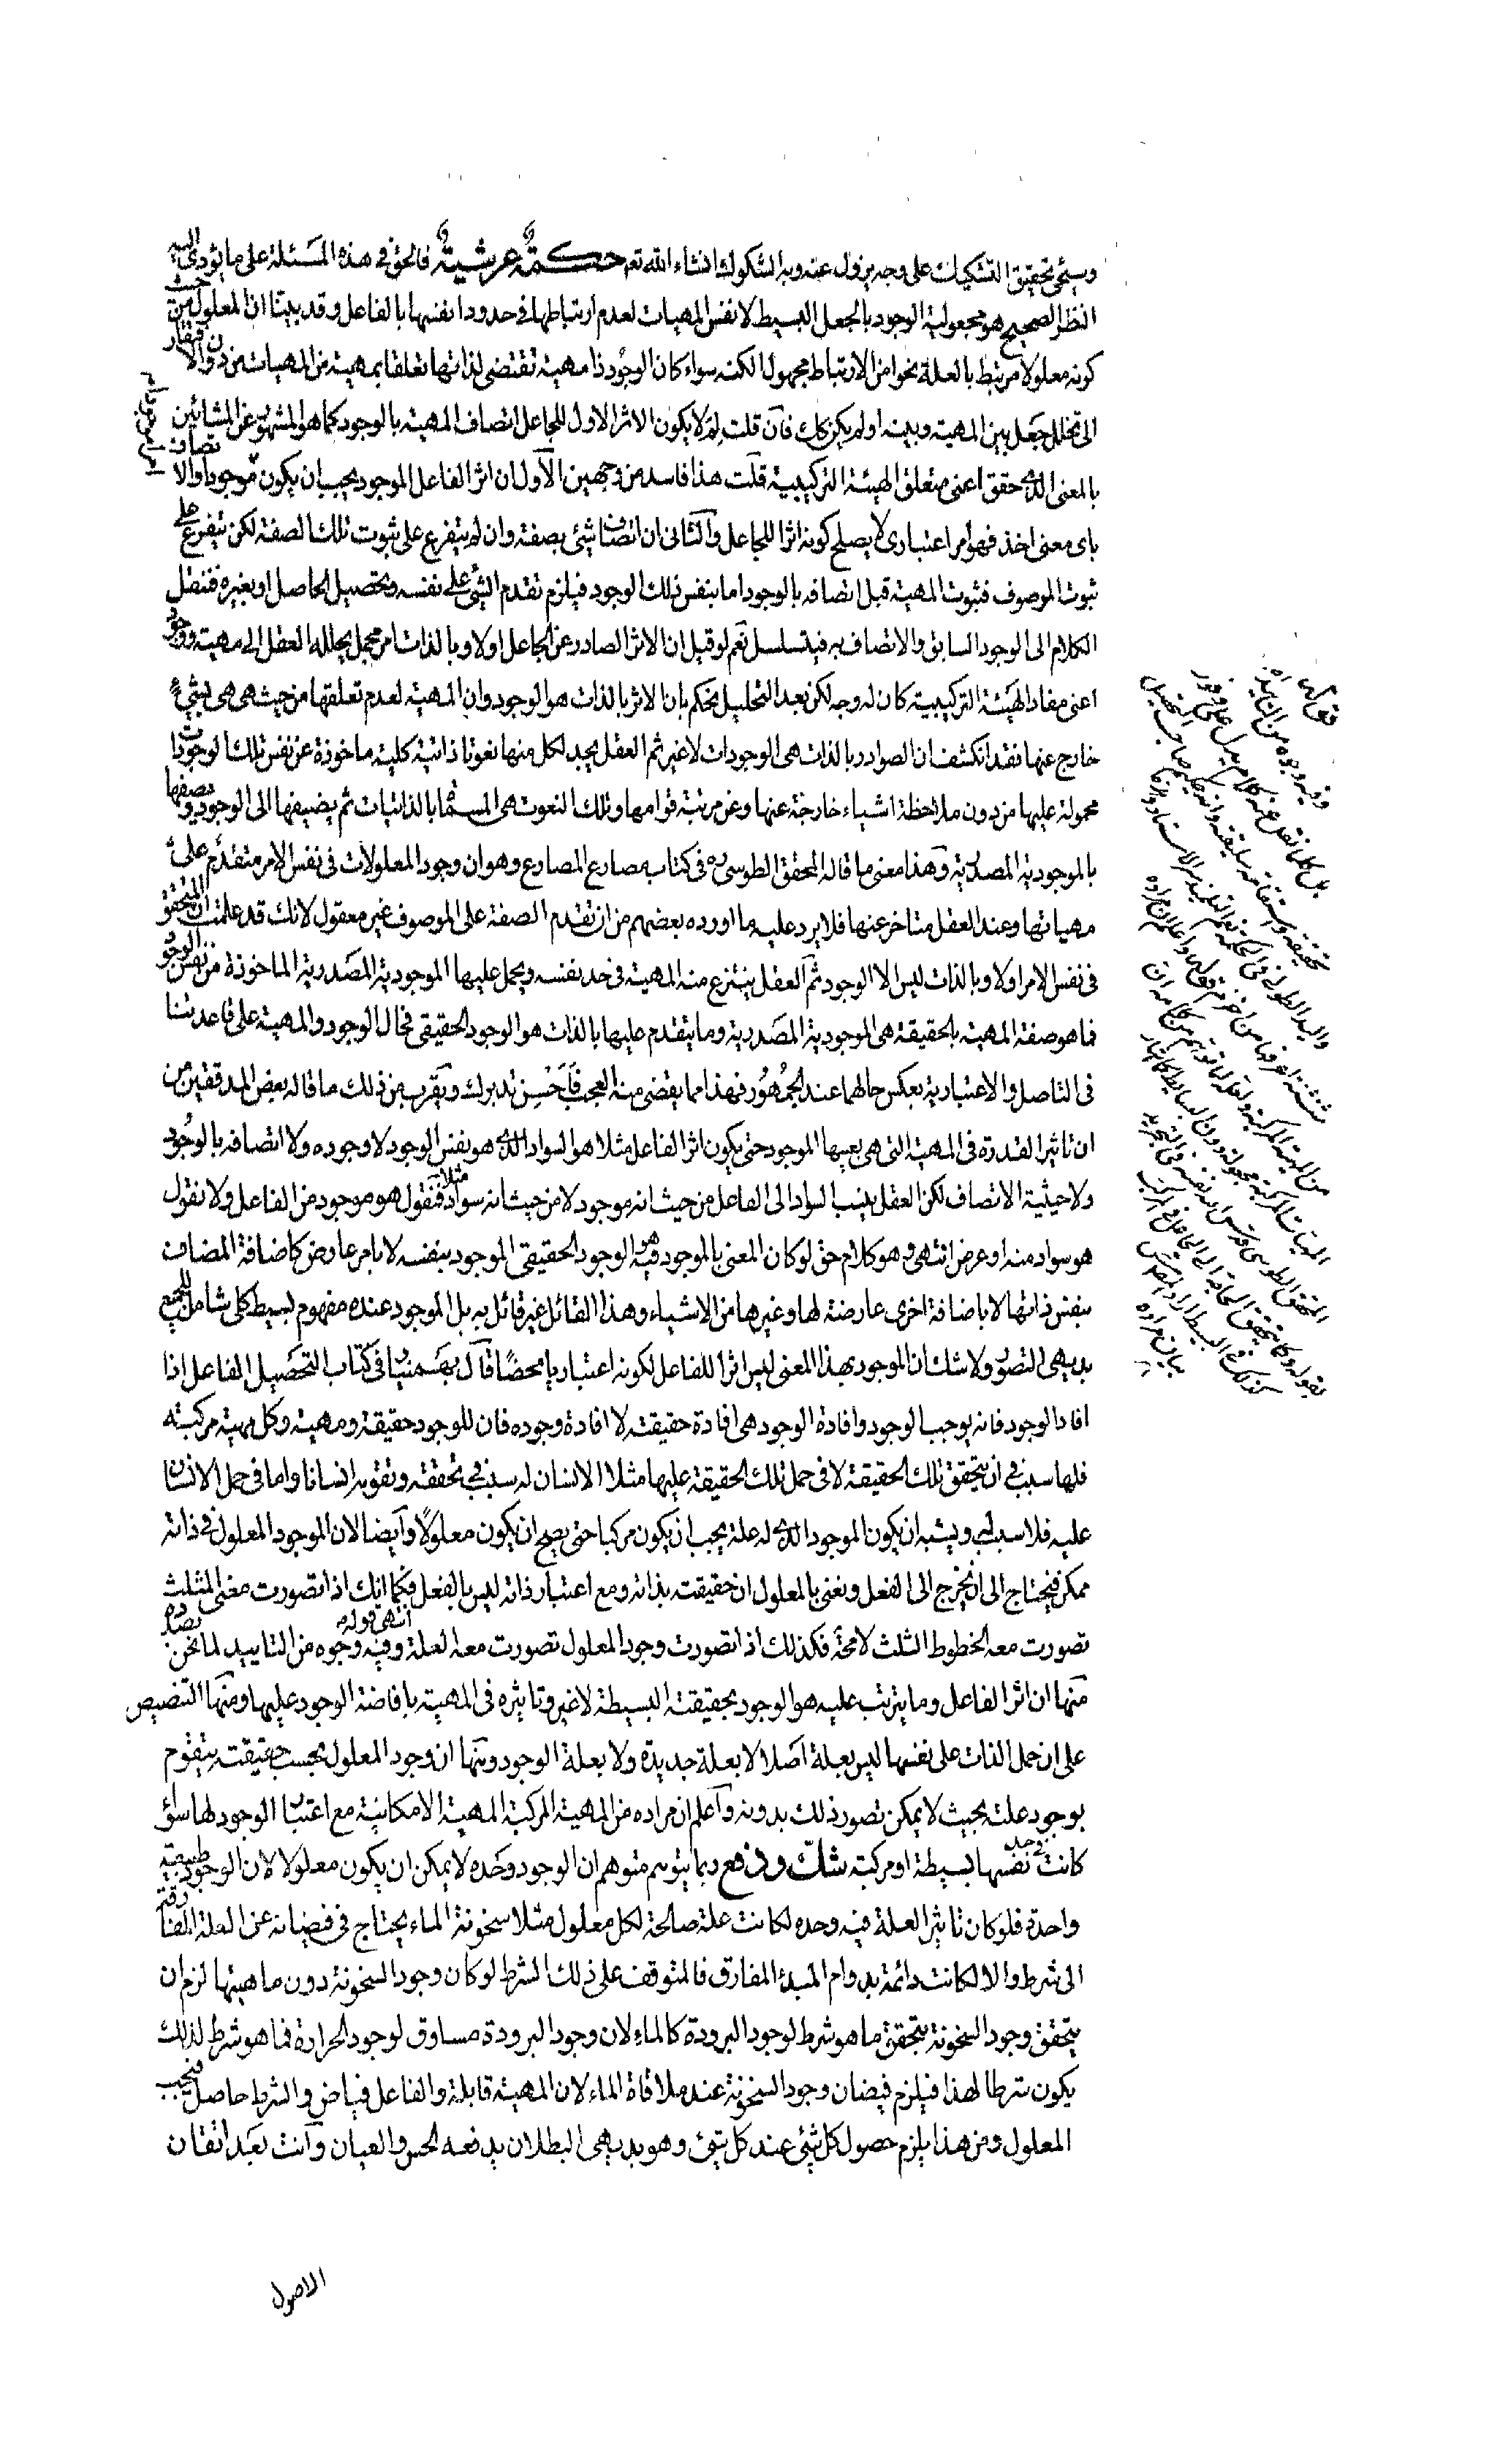 وسيئ تحقيق التشكيك على وجه يزول عنه وبه الشكوك انشاء الله تعالى حكمة عرشية فالحق في هذه المسئلة على ما يؤدى اليه
النظر الصحيح هو مجعولية الوجود بالجعل البسيط لا نفس المهيات لعدم ارتباطها في حدود انفسها بالفاعل وقد بينا ان المعلول من حيث
كونه معلولا مرتبط بالعلة نحوا من الارتباط مجهول الكنه سواء كان الوجود ذا مهية تقتضى لذاتها تعلقا بمهية من المهيات من دون الافتقار
الى تخلل جعل بين المهية وبينه او لم يكن كك فان قلت لم لا يكون الاثر الاول للجاعل اتصاف المهية بالوجود كما هو المشهور عن المشائين
بالمعنى الذى حقق اعنى متعلق الهيئة التركيبية قلت هذا فاسد من وجهين الاول ان اثر الفاعل الموجود يجب ان يكون موجودا والاتصاف
باى معنى اخذ فهو امر اعتبارى لا يصلح كونه اثرا للجاعل والثانى ان اتصاف شئ بصفة وان لم يتفرع على ثبوت تلك الصفة لكن يتفرع على
ثبوت الموصوف فثبوت المهية قبل اتصافه بالوجود اما بنفس ذلك الوجود فيلزم تقدم الشئ على نفسه وتحصيل الحاصل او بغيره فننقل
الكلام الى الوجود السابق والاتصاف به فيتسلسل نعم لو قيل ان الاثر الصادر عن الجاعل اولا وبالذات امر مجمل يحلله العقل الى مهية ووجود
اعنى مفاد الهيئة التركيبية كان له وجه لكن بعد التحليل يحكم بان الاثر بالذات هو الوجود وان المهية لعدم تعلقها من حيث هى هى بشئ
خارج عنها فقد انكشف ان الصوادر بالذات هى الوجودات لا غير ثم العقل يجد لكل منها نعوتا ذاتية كلية ماخوذة عن نفس تلك الوجودات
محمولة عليها من دون ملاحظة اشياء خارجة عنها وعن مرتبة قوامها وتلك النعوت هى المسماة بالذاتيات ثم يضيفها الى الوجود ويصفها
بالموجودية المصدرية وهذا معنى ما قاله المحقق الطوسى ره فى كتاب مصارع المصارع وهو ان وجود المعلولات فى نفس الامر متقدم على
مهياتها وعند العقل متاخر عنها فلا يرد عليه ما اورده بعضهم من ان تقدم الصفة على الموصوف غير معقول لانك قد علمت ان المتحقق
فى نفس الامر اولا وبالذات ليس الا الوجود ثم العقل ينتزع منه المهية فى حد نفسه ويحمل عليها الموجودية المصدرية الماخوذة من نفس الوجود
فما هو صفة المهية بالحقيقة هى الموجودية المصدرية وما يتقدم عليها بالذات هو الوجود الحقيقى فحال الوجود والمهية على قاعدتنا
فى التاصل والاعتبارية بعكس حالهما عند الجمهور فهذا مما يقضى منه العجب فاحسن تدبرك ويقرب من ذلك ما قاله بعض المدققين من
ان تاثير القدرة فى المهية التى هى بعينها الموجود حتى يكون اثر الفاعل مثلا هو السواد الذى هو نفس الوجود لا وجوده ولا اتصافه بالوجود
ولا حيثية الاتصاف لكن العقل ينسب السواد الى الفاعل من حيث انه موجود لا من حيث انه سواد مثلا فنقول هو موجود من الفاعل ولا نقول
هو سواد منه او عرض انتهى وهو كلام حق لو كان المعنى بالموجود فيه هو الوجود الحقيقى الموجود بنفسه لا بامر عارض كاضافة المضاف
بنفس ذاتها لا باضافة اخرى عارضة لها وغيرها من الاشياء وهذا القائل غير قائل به بل الموجود عنده مفهوم بسيط كلى شامل للجميع
بديهى التصور ولا شك ان الموجود بهذا المعنى ليس اثرا للفاعل لكونه اعتباريا محضا قال بهمنيار فى كتاب التحصيل الفاعل اذا
افاد الوجود فانه يوجب الوجود وافادة الوجود هى افادة حقيقته لا افادة وجوده فان للوجود حقيقة ومهية وكل مهية مركبته
فلها سبب فى ان يتحقق تلك الحقيقة لا فى حمل تلك الحقيقة عليها مثلا الانسان له سبب فى تحققه وتقومه انسانا واما فى حمل الانسان
عليه فلا سبب له ويشبه ان يكون الموجود الذى له علة يجب ان يكون مركبا حتى يصح ان يكون معلولا وايضا لان الموجود المعلول فى ذاته
ممكن فيحتاج الى ان يخرج الى الفعل ونعنى بالمعلول ان حقيقته بذاته ومع اعتبار ذاته ليس بالفعل فكما انك اذا تصورت معنى المثلث
تصورت معه الخطوط الثلث لا محة فكذلك اذا تصورت وجود المعلول تصورت معه العلة انتهى قوله وفيه وجوه من التاييد لما نحن بصدده
منها ان اثر الفاعل وما يترتب عليه هو الوجود بحقيقته البسيطة لا غير وتاثيره فى المهية بافاضة الوجود عليها ومنها التنصيص
على ان حمل الذات على نفسها ليس بعلة اصلا لا بعلة جديدة ولا بعلة الوجود ومنها ان وجود المعلول بحسب حقيقته يتقوم
بوجود علته بحيث لا يمكن تصور ذلك بدونه واعلم ان مراده من المهية المركبة المهية الامكانية مع اعتبار الوجود لها سواء
كانت فى حد نفسها بسيطة او مركبة شك ودفع ربما يتوهم متوهم ان الوجود وحده لا يمكن ان يكون معلولا لان الوجود طبيعة
واحدة فلو كان تاثير العلة فيه وحده لكانت علة صالحة لكل معلول مثلا سخونة الماء يحتاج فى فيضانه عن العلة المفارقة
الى شرط والا لكانت دائمة بدوام المبدء المفارق فالمتوقف على ذلك الشرط لو كان وجود السخونة دون ماهيتها لزم ان
يتحقق وجود السخونة بتحقق ما هو شرط لوجود البرودة كالماء لان وجود البرودة مساوق لوجود الحرارة فما هو شرط لذلك
يكون شرطا لهذا فيلزم فيضان وجود السخونة عند ملاقاة الماء لان المهية قابلة والفاعل فياض والشرط حاصل فيجب
المعلول ومن هذا يلزم حصول كل شئ عند كل شئ وهو بديهى البطلان يدفعه الحس والعيان وانت بعد اتقان
الاصول